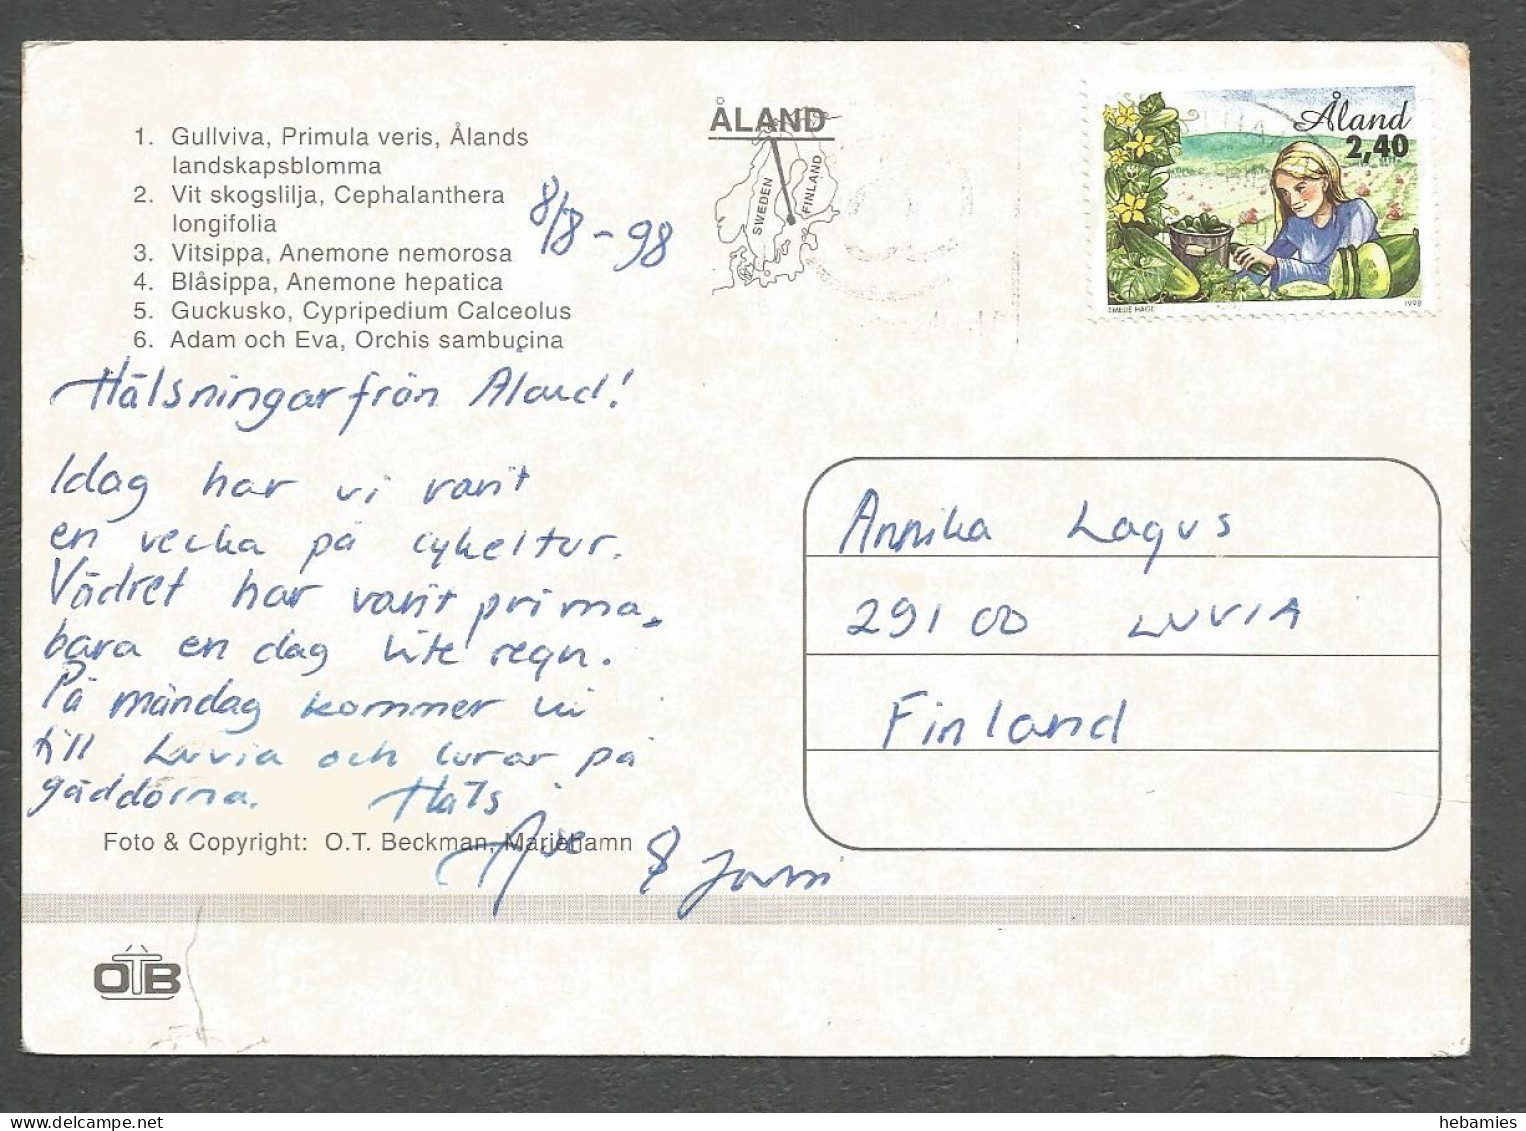 1. Gullviva, Primula veris, Ålands
landskapsblomma
2. Vit skogslilja, Cephalanthera
longifolia
3. Vitsippa, Anemone nemorosa
4. Blåsippa, Anemone hepatica
5. Guckusko, Cypripedium Calceolus
6. Adam och Eva, Orchis sambucina
8/8-98
Hälsningar från Åland!
Idag har vi varit
en vecka på cykeltur.
Vädret har varit prima,
bara en dag lite regn.
På måndag kommer vi
till Luvia och lurar på
gäddorna. Häls
& Jovni
Foto & Copyright: O.T. Beckman, Mariehamn
OTB
ÅLAND
SWEDEN
FINLAND
Åland
2,40
EMELIE HAGE
1998
Annika Lagus
29100 LUVIA
Finland
hebamies